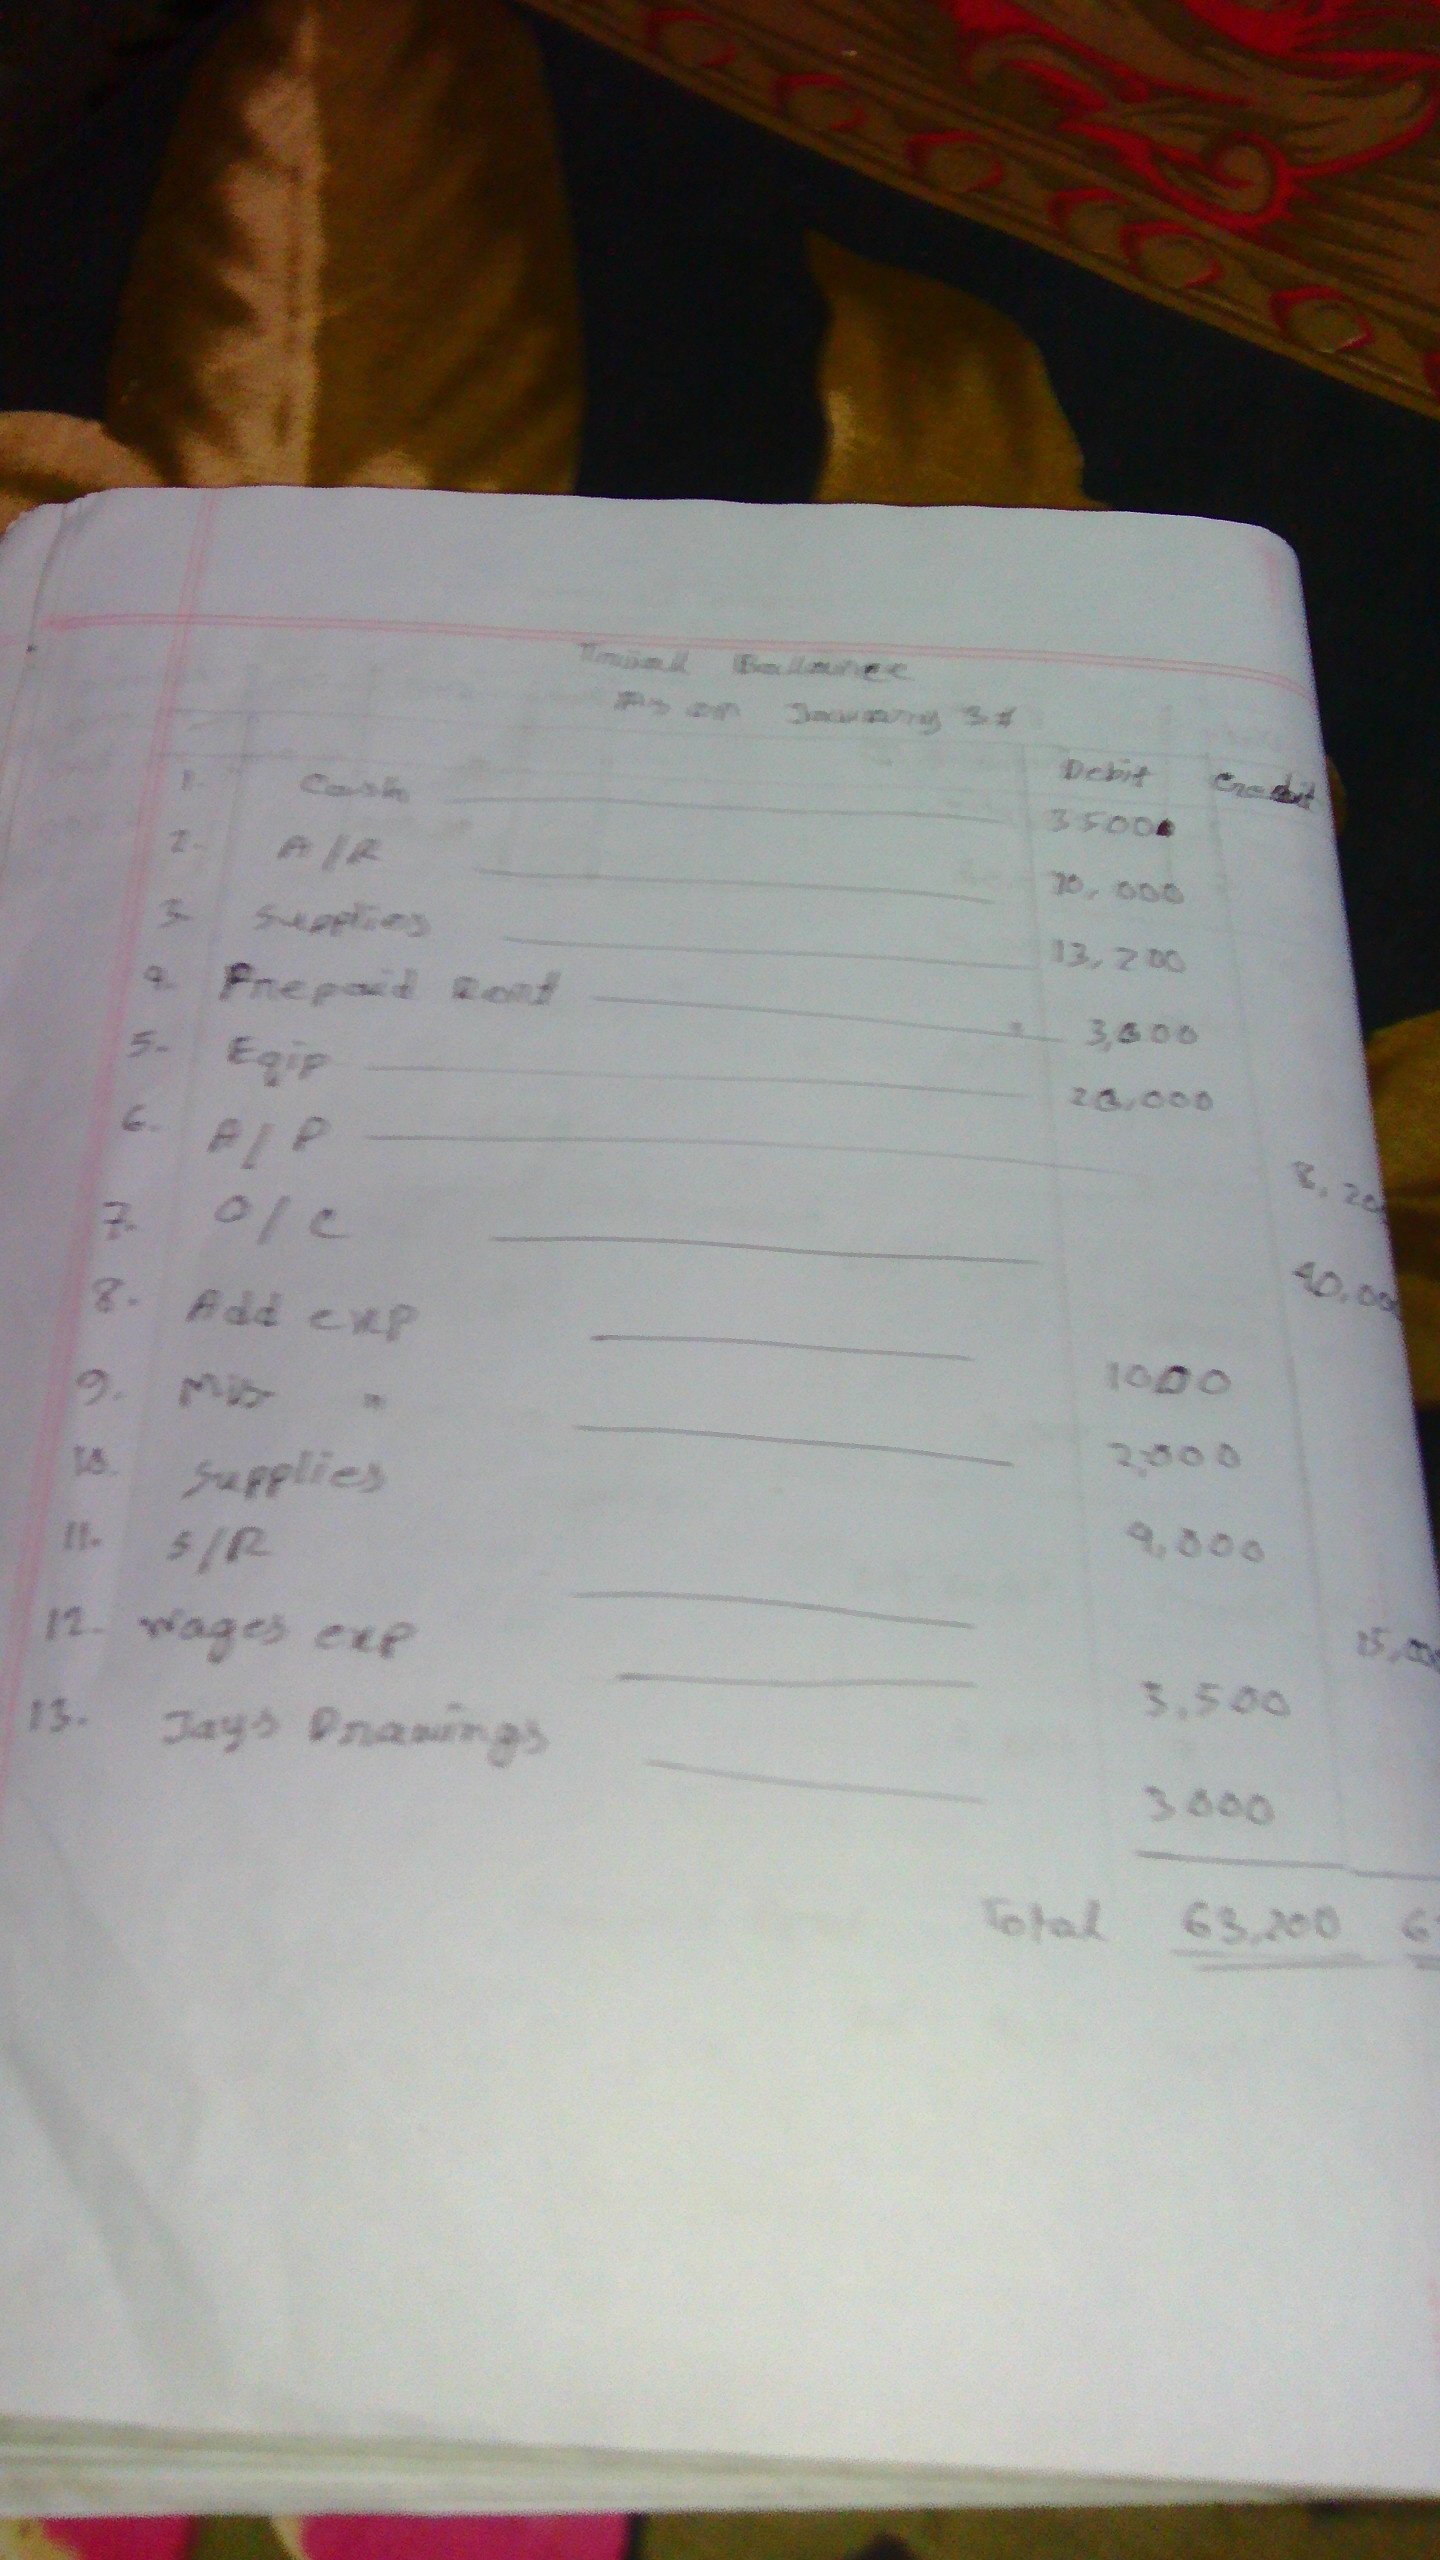 Trail Ballance
As on January 31
Debit Credit
1. Cash 3500
2. A/R 10,000
3. Supplies 13,200
4. Prepaid Rent 3,000
5. Eqip 20,000
6. A/P 8,20
7. O/C 40,000
8. Add exp 1000
9. Mis " 2,000
10. Supplies 4,000
11. S/R 15,000
12. Wages exp 3,500
13. Jays Drawings 3000
Total 63,200 6